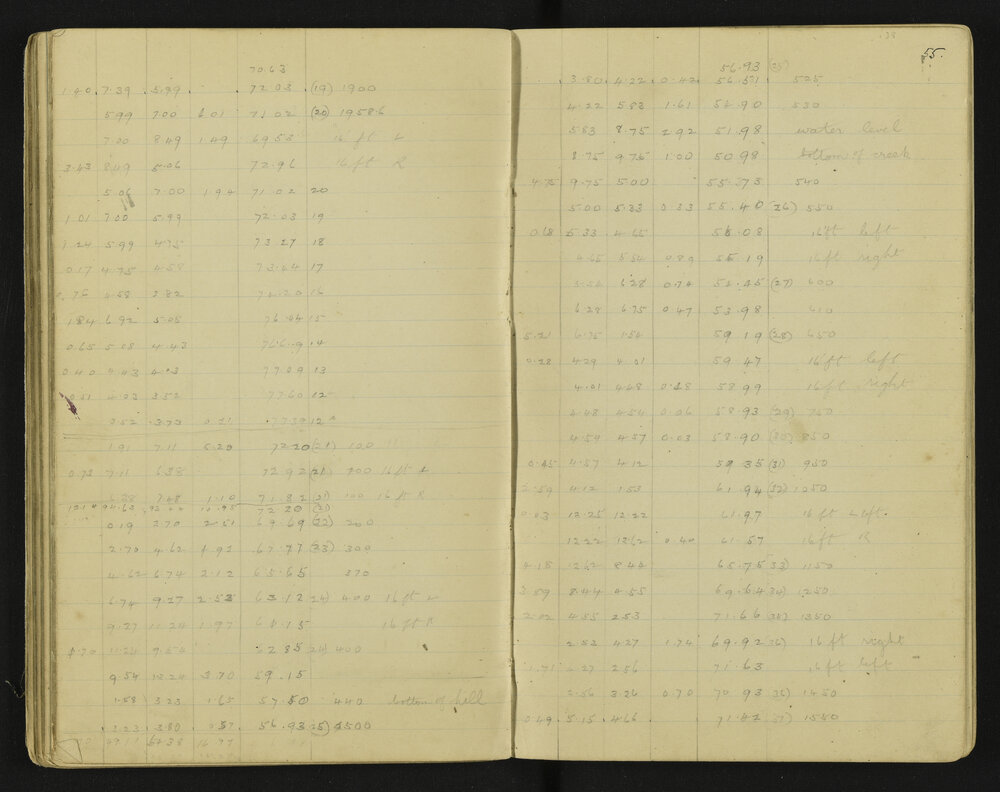 70.63
1.40 7.39 5.99 72.03 (19) 1900
5.99 7.00 1.01 71.02 (20) 1958.6
7.00 8.49 1.49 69.53 16 ft L
3.43 8.49 5.06 72.96 16 ft R
5.06 7.00 1.94 71.02 20
1.01 7.00 5.99 72.03 19
1.24 5.99 4.75 73.27 18
0.17 4.75 4.58 73.44 17
4.58 3.82 74.20 16
1.84 6.92 5.08 76.04 15
0.65 5.08 4.43 76.69 14
0.40 4.43 4.03 77.09 13
0.51 4.03 3.52 77.60 12
3.52 3.73 0.21 77.39 12
1.91 7.11 5.20 72.20 (21) 100
0.73 7.11 6.38 72.92 (21) 100 16 ft L
6.38 7.48 1.10 71.82 (21) 100 16 ft R
72.20 (21)
0.19 2.70 2.51 69.69 (22) 200
2.70 4.62 1.92 67.77 (23) 300
4.62 6.74 2.12 65.65 370
6.74 9.27 2.53 63.12 (24) 400 16 ft L
9.27 11.24 1.97 61.15 16 ft R
1.70 11.24 9.54 62.85 (24) 400
9.54 13.24 3.70 59.15
1.58 3.23 1.65 57.50 440 bottom of hill
3.23 3.80 0.57 56.93 (25) 500
55.
56.93 (25)
3.80 4.22 0.42 56.51 525
4.22 5.83 1.61 54.90 530
5.83 8.75 2.92 51.98 water level
8.75 9.75 1.00 50.98 bottom of creek
4.75 9.75 5.00 55.73 540
5.00 5.33 0.33 55.40 (26) 550
0.68 5.33 4.65 56.08 16 ft left
4.65 5.54 0.89 55.19 16 ft right
5.54 6.28 0.74 54.45 (27) 600
6.28 6.75 0.47 53.98 610
5.21 6.75 1.54 59.19 (28) 650
0.28 4.29 4.01 59.47 16 ft left
4.01 4.48 0.48 58.99 16 ft right
4.48 4.54 0.06 58.93 (29) 750
4.54 4.57 0.03 58.90 (30) 850
0.45 4.57 4.12 59.35 (31) 950
2.59 4.12 1.53 61.94 (32) 1050
0.03 12.25 12.22 61.97 16 ft Left
12.22 12.62 0.40 61.57 16 ft R
4.18 12.62 8.44 65.75 (33) 1150
3.89 8.44 4.55 69.64 (34) 1250
2.02 4.55 2.53 71.66 (35) 1350
2.53 4.27 1.74 69.92 16 ft right
1.71 4.27 2.56 71.63 16 ft left
2.56 3.26 0.70 70.93 (36) 1450
0.49 5.15 4.66 71.42 (37) 1550